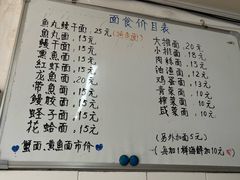 面食价目表
鱼丸鳗干面.25元
鱼丸面.15元
鳗干面.15元
墨鱼面.15元
红虾面.15元
龙鱼面.20元
带鱼面.15元
鳗胶面.15元
蛏子面.15元
花蛤.15元
蟹面.黄鱼面市价
大排面.20元
小排面.18元
肉丝面.13元
油渣面.12元
鸡蛋面.13元
青菜面.10元
榨菜面.10元
咸菜面.10元
(另外加面5元)
(每加1样海鲜加10元)